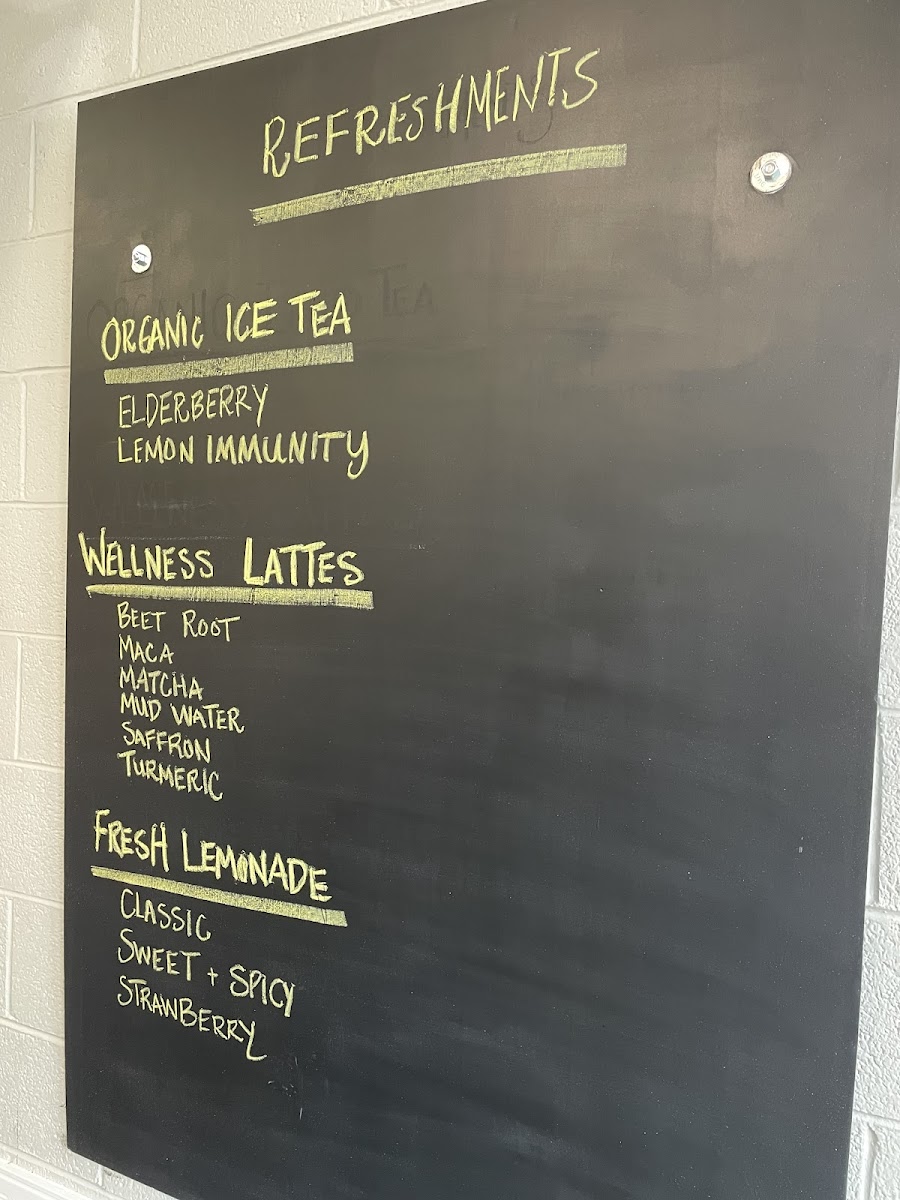 REFRESHMENTS
ORGANIC ICE TEA
ELDERBERRY
LEMON IMMUNITY
WELLNESS LATTES
BEET ROOT
MACA
MATCHA
MUD WATER
SAFFRON
TURMERIC
FRESH LEMONADE
CLASSIC
SWEET + SPICY
STRAWBERRY